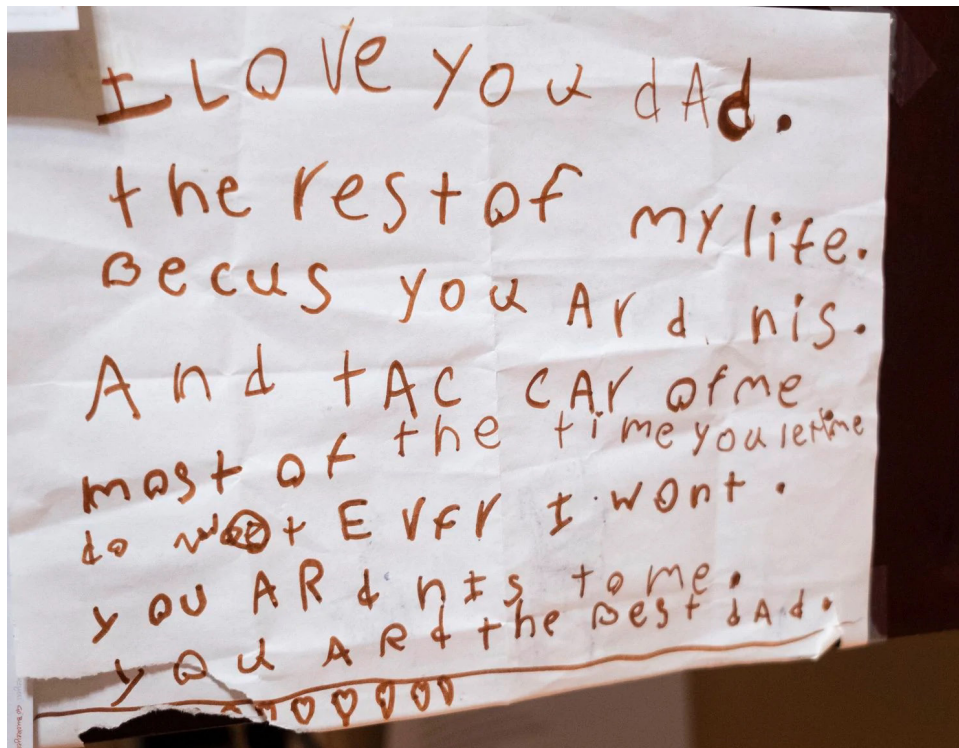 I LOVe you dAd.
the rest of my life.
Becus you Ard nis.
And tAC CAr of me
most of the time you let me
do wot EVer I wont.
you ARd nIs to me.
you ARd the Best dAd.